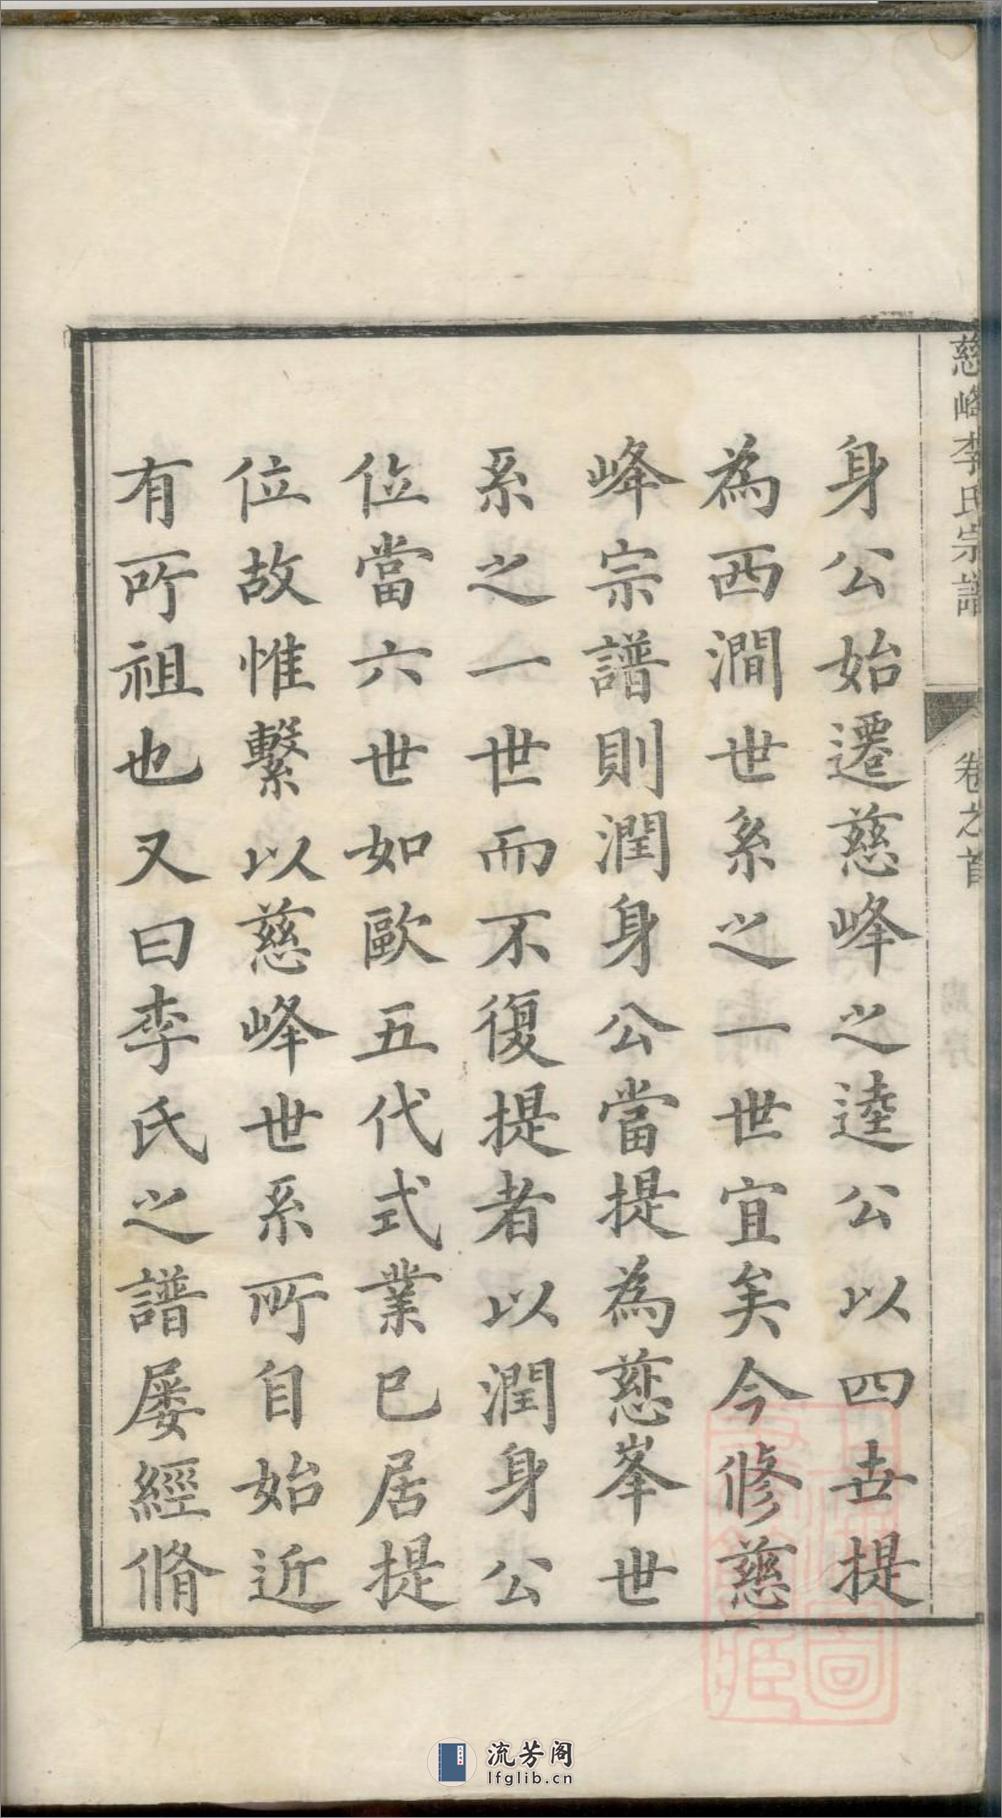 慈峰李氏宗譜
卷之首
身公始遷慈峰之逵公以四世提
為西澗世系之一世宜矣今修慈
峰宗譜則潤身公當提為慈峯世
系之一世而不復提者以潤身公
位當六世如歐五代式業已居提
位故惟繫以慈峰世系所自始近
有所祖也又曰李氏之譜屡經脩
流芳阁
lfglib.cn